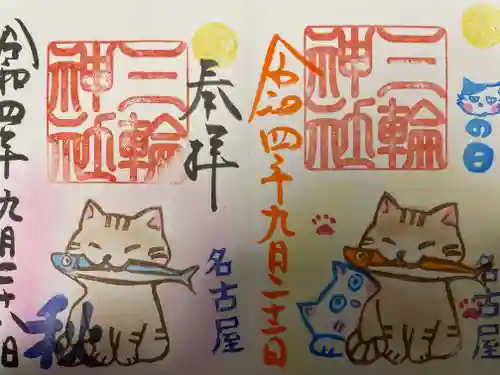 奉拝
三輪
神社
名古屋
秋
令和四年九月二十八日
の日
三輪
神社
名古屋
令和四年九月二十二日